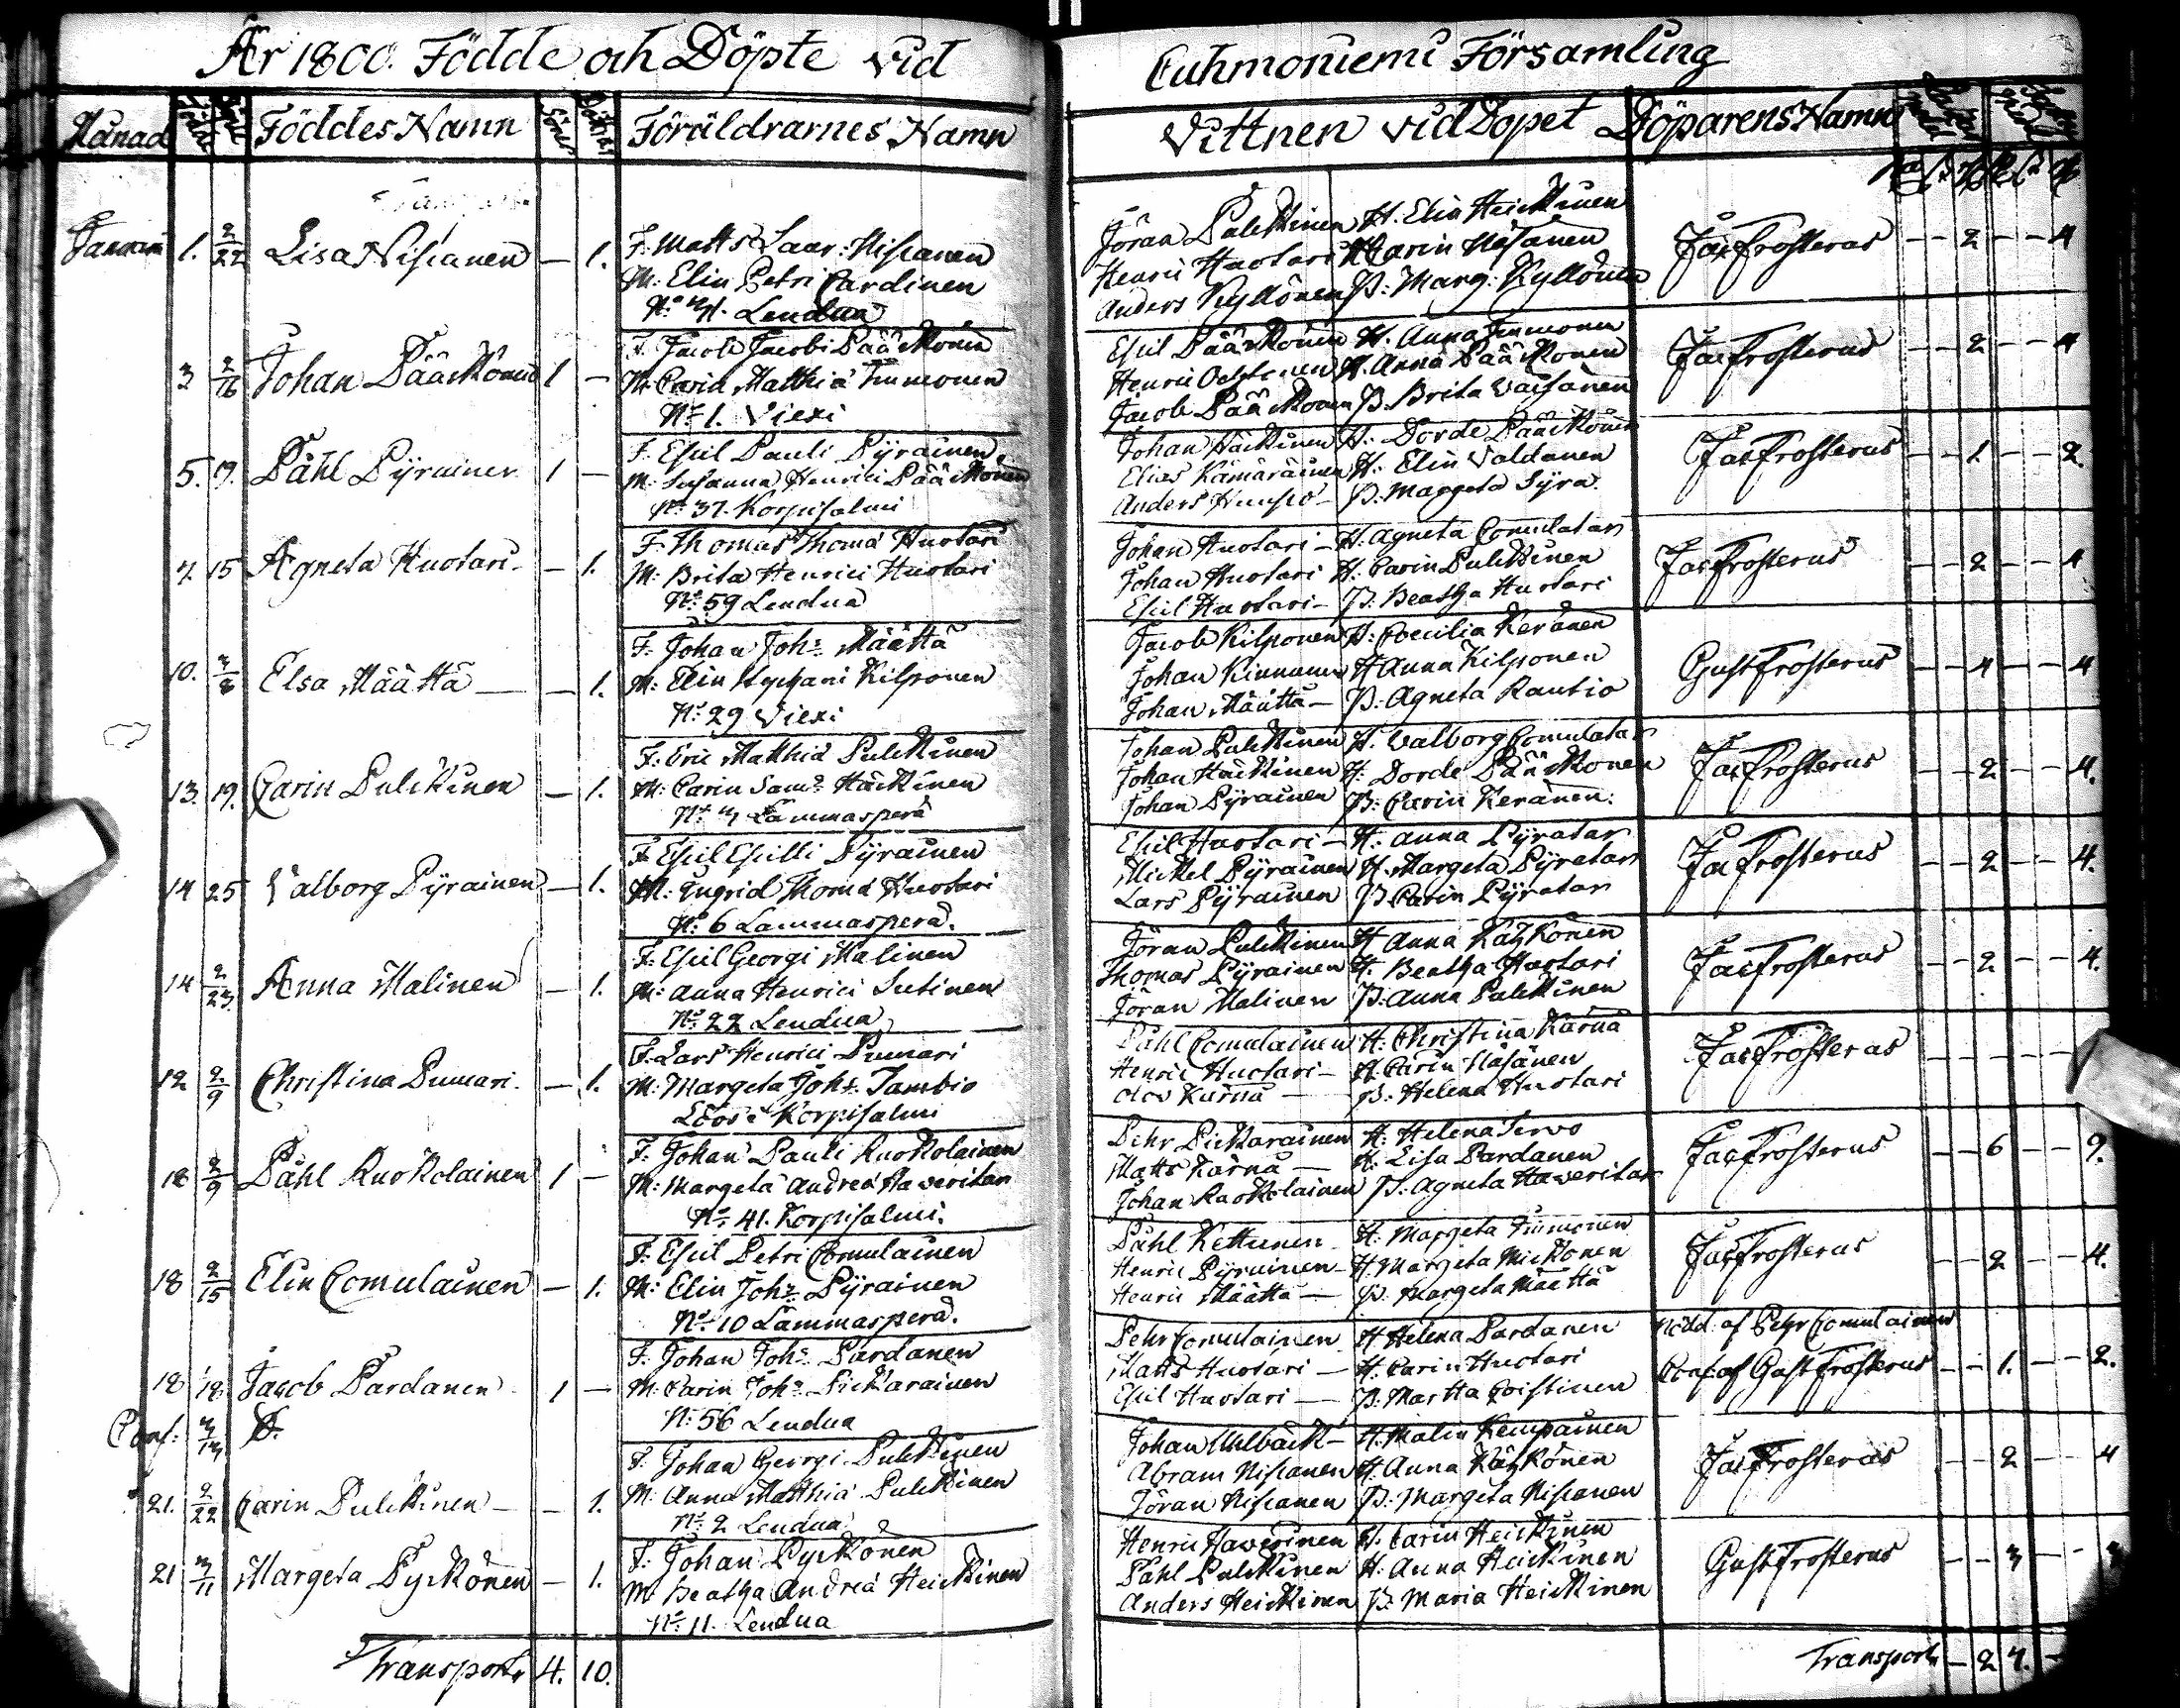 År 1800. Födde och Döpte vid Cuhmoniemi Församling
Månad Födde Döpte Föddes Namn Söner Döttrar Föräldrarnes Namn
Vittnen vid Dopet Döparens Namn
Januarii 1. 2/22 Lisa Nissanen — 1.
F: Matts Laar: Nissanen
M: Elin Petri Pardinen
Lendua
Jöran Pulckinen H. Elin Heickinen
Henric Huotari H. Carin Mäsänen
Anders Kyllönen P: Marg: Kyllönen
Jac Frosterus — — 2 — — 4
3 2/16 Johan Pääckönen 1 —
F: Jacob Jacobi Pääckönen
M: Carin Matthiæ Timmonen
No 1. Viexi
Eskil Pääckönen H. Anna Timmonen
Henric H. Anna Pääckönen
Jacob Pääckönen P. Brita Väisänen
Jac Frosterus — — 2 — — 4
5. 9. Påhl Pyrainen 1 —
F. Eskil Pauli Pyrainen
M: Susanna Henrici Pääckönen
No 37. Korpisalmi
Johan Häickinen H: Dorde Pääckönen
Elias Kämäräinen H: Elin Valdanen
Anders P: Margeta Syrä
Jac Frosterus — — 1. — — 2.
7. 15 Agneta Huotari — 1.
F. Thomas Thomæ Huotari
M: Brita Henrici Huotari
No 59 Lendua
Johan Huotari — H. Agneta Comulatar
Johan Huotari H. Carin Pulckinen
Eskil Huotari — P. Beatha Huotari
Jac Frosterus — — 2 — — 4
10. 3/8 Elsa Määttä — — 1.
F: Johan Johs: Määttä
M: Elin Stephani Kilponen
No 29 Viexi
Jacob Kilponen H: Cæcilia Keränen
Johan Kinnunen H Anna Kilponen
Johan Määttä — P. Agneta Rautio
Gust Frosterus — — 4 — — 4
13. 19. Carin Pulckinen — 1.
F: Eric Matthiæ Pulckinen
M: Carin Sams: Häickinen
No 3 Lammasperä
Johan Pulckinen H. Valborg Comulatar
Johan Häickinen H: Dorde Pääckönen
Johan Pyrainen P: Carin Keränen.
Jac Frosterus — — 2 — — 4.
14 25 Valborg Pyrainen — 1.
F Eskil Eskilli Pyrainen
M: Ingrid Thomæ Huotari
No 6 Lammasperä.
Eskil Huotari — H: Anna Pyratar
Mickel Pyrainen H. Margeta Pyratar
Lars Pyrainen P Carin Pyratar
Jac Frosterus — — 2 — — 4.
14 2/23. Anna Malinen — 1.
F: Eskil Georgi Malinen
M: Anna Henrici Sutinen
No 22 Lendua
Jöran Pulckinen H Anna Kähkönen
Thomas Pyrainen H. Beatha Huotari
Jöran Malinen P: Anna Pulckinen
Jac Frosterus — — 2 — — 4.
12 2/9 Christina Pumari. — 1.
F: Lars Henrici Pumari
M: Margeta Johs: Tambio
Löos i Korpisalmi
Påhl Comulainen H: Christina Kärnä
Henric Huotari — H. Carin Mäsänen
Kärnä — P: Helena Huotari
Jac Frosterus — — — — —
18 2/9 Påhl Ruokolainen 1 —
F: Johan Pauli Ruokolainen
M: Margeta Andreæ Haveritar
No 41. Korpisalmi.
Pehr Pickarainen H: Helena Servo
Matts Kärnä — H: Lisa Pardanen
Johan Ruokolainen P: Agneta Haveritar
Jac Frosterus — — 6 — — 9.
18 2/15 Elin Comulainen — 1.
F: Eskil Petri Comulainen
M: Elin Johs: Pyrainen
No 10 Lammasperä.
Påhl Kettunen H. Margeta Timmonen
Henric Pyrainen — H. Margeta Mickonen
Henric Määttä — P: Margeta Määttä
Jac Frosterus — — 2 — — 4.
18 18 Jacob Pardanen 1 —
Conf: 3/13
F: Johan Johs: Pardanen
M: Carin Johs: Pickarainen
N: 56 Lendua
Pehr Comulainen H Helena Pardanen
Matts Huotari — H. Carin Huotari
Eskil Huotari — P. Martta Coistinen
Nöd. af Pehr Comulainen
Conf. af Gust Frosterus — — 1. — — 2.
21. 2/22 Carin Pulckinen — — 1.
F. Johan Georgi Pulckinen
M: Anna Matthiæ Pulckinen
No 2 Lendua
Johan Uhlbäck — H: Malin Kempainen
Abram Nissanen H. Anna Kähkönen
Jöran Nissanen P: Margeta Nissanen
Jac Frosterus — — 2 — — 4
21 3/11 Margeta Pyckönen — 1.
F: Johan Pyckönen
M: Beatha Andreæ Heickinen
No 11. Lendua
Henric Haverinen H. Carin Heickinen
Påhl Pulckinen H: Anna Heickinen
Anders Heickinen P. Maria Heickinen
Gust Frosterus — — 3 — —
Transport 4. 10.
Transport — 2 7. —